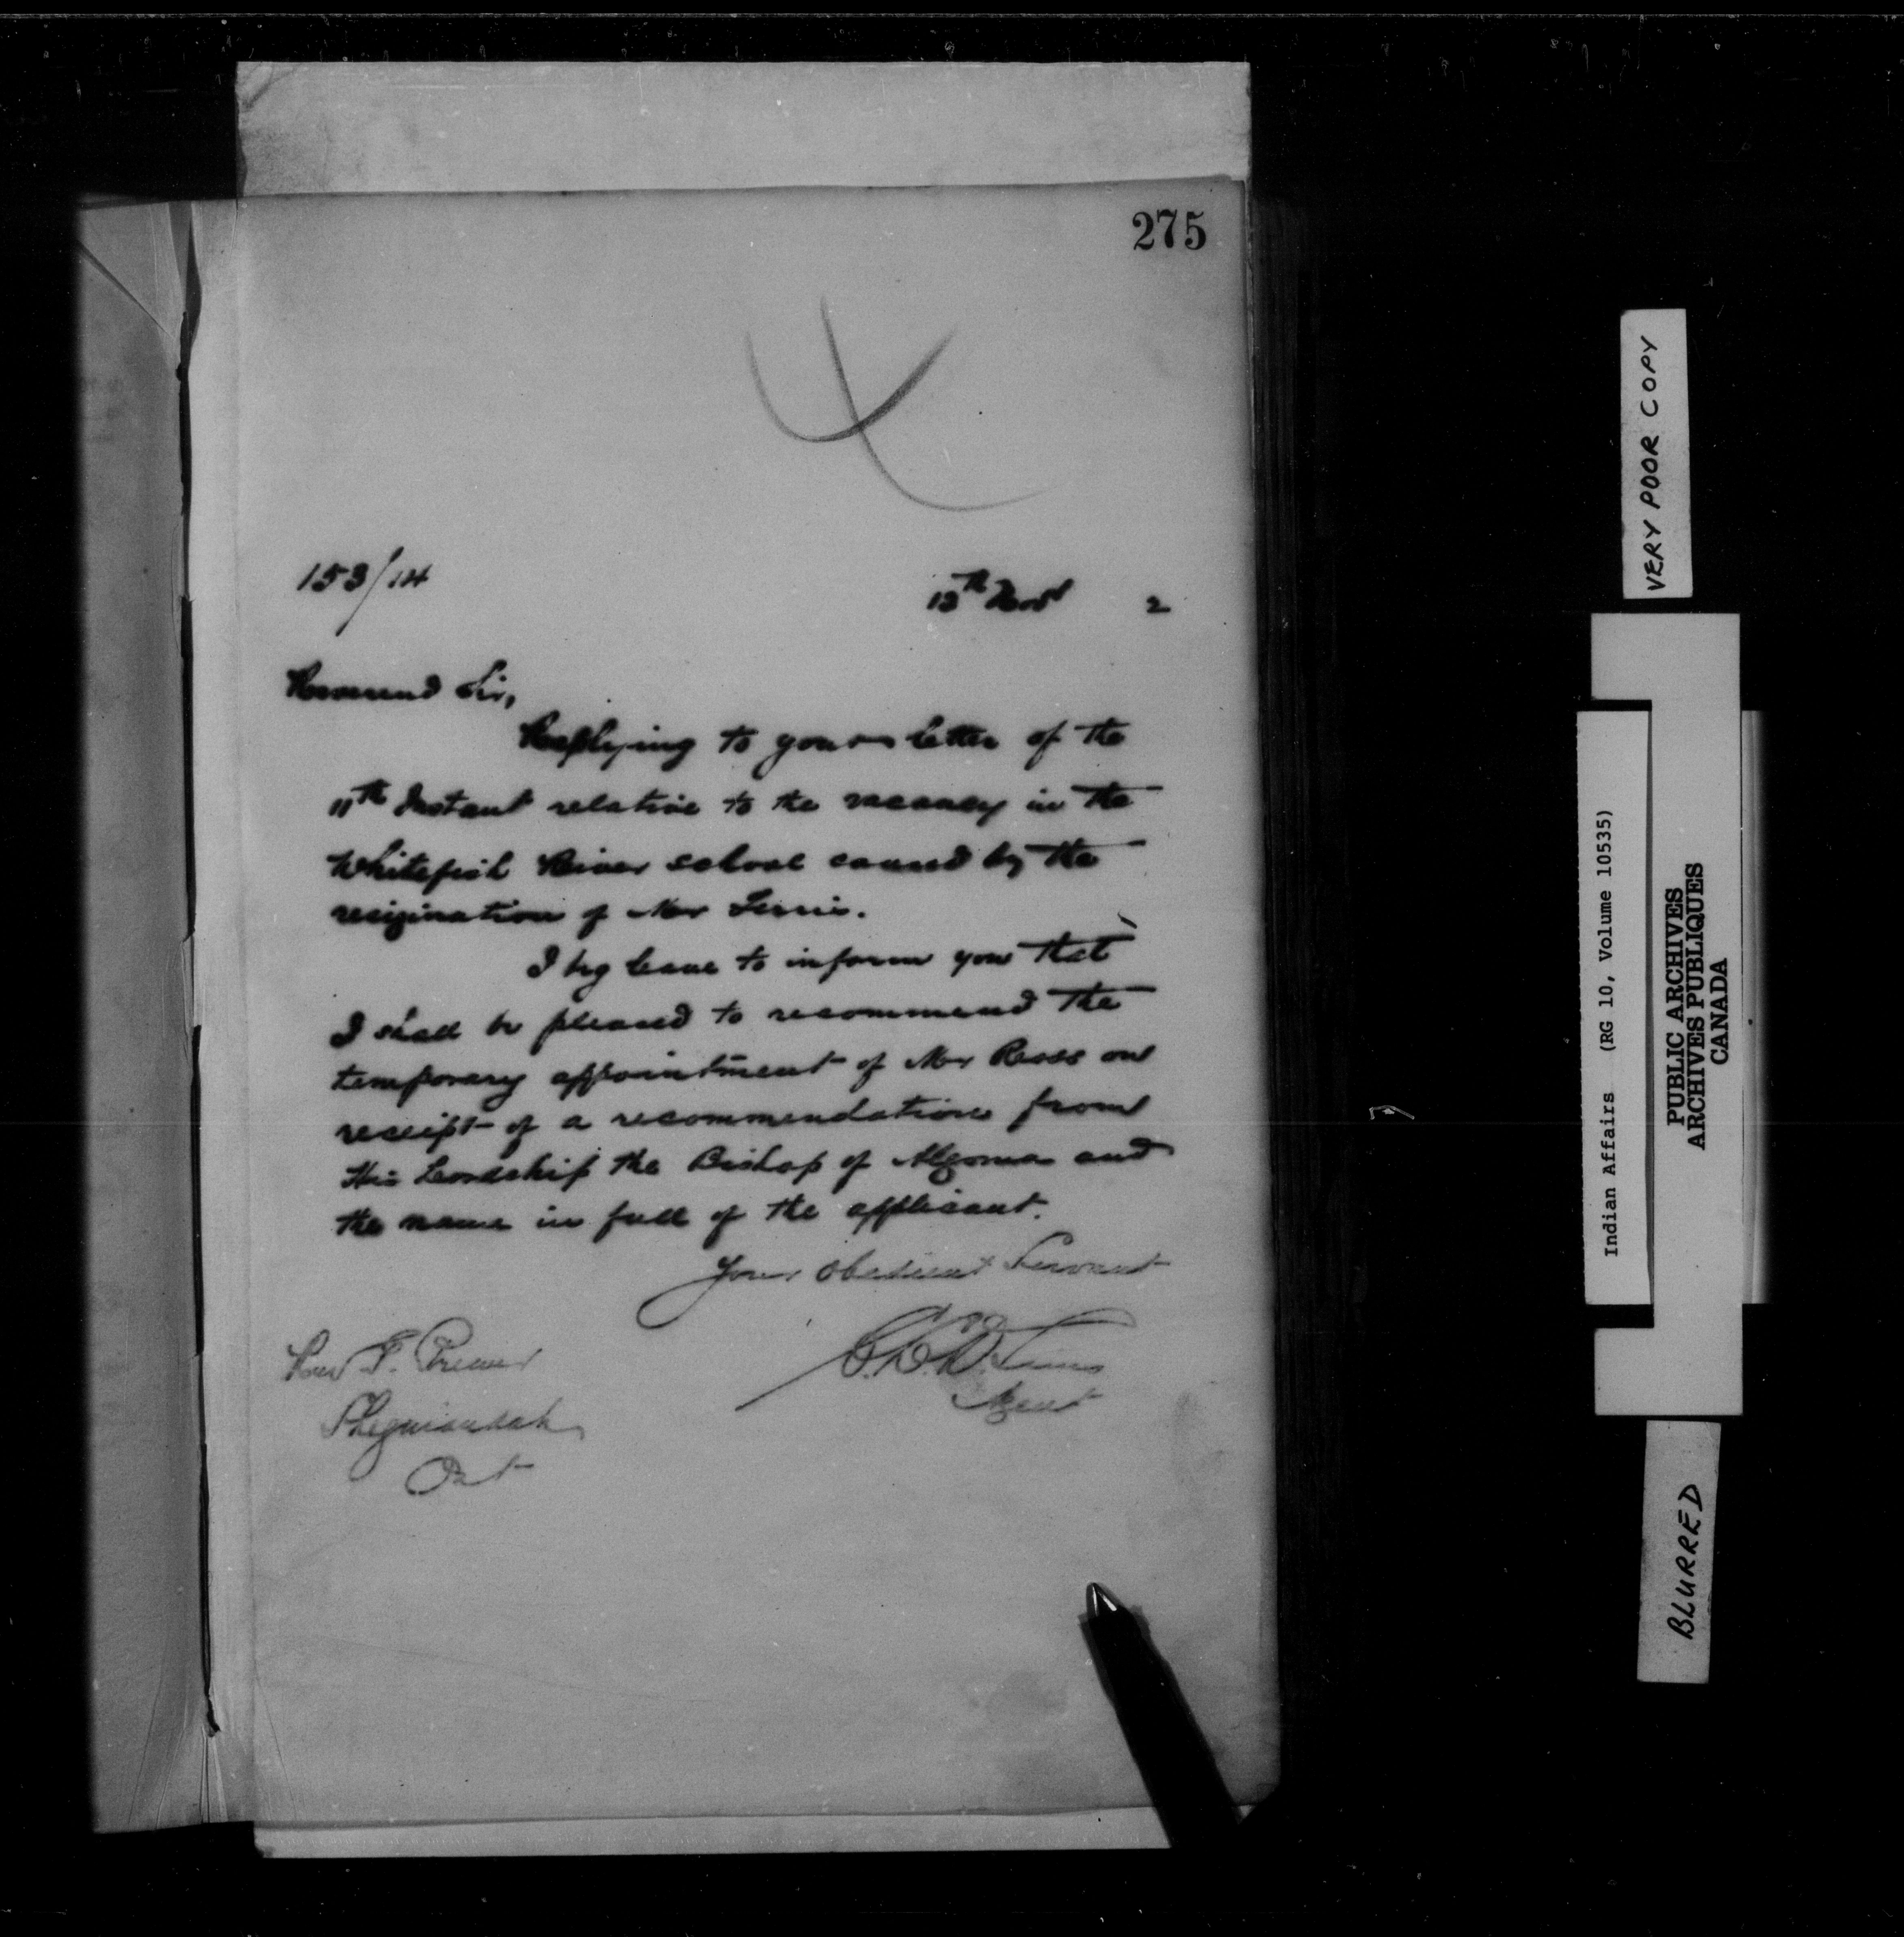 275
153/14
13th Novr 2
Reverend Sir,
Replying to your letter of the
11th Instant relative to the vacancy in the
Whitefish River school caused by the
resignation of Mr
I beg leave to inform you that
I shall be pleased to recommend the
temporary appointment of Mr on
receipt of a recommendation from
His Lordship the Bishop of Algoma and
the name in full of the applicant.
Your obedient Servant
Rev F. Frost
Agent
Sheguiandah
Ont
VERY POOR COPY
Indian Affairs (RG 10, Volume 10535)
PUBLIC ARCHIVES
ARCHIVES PUBLIQUES
CANADA
BLURRED